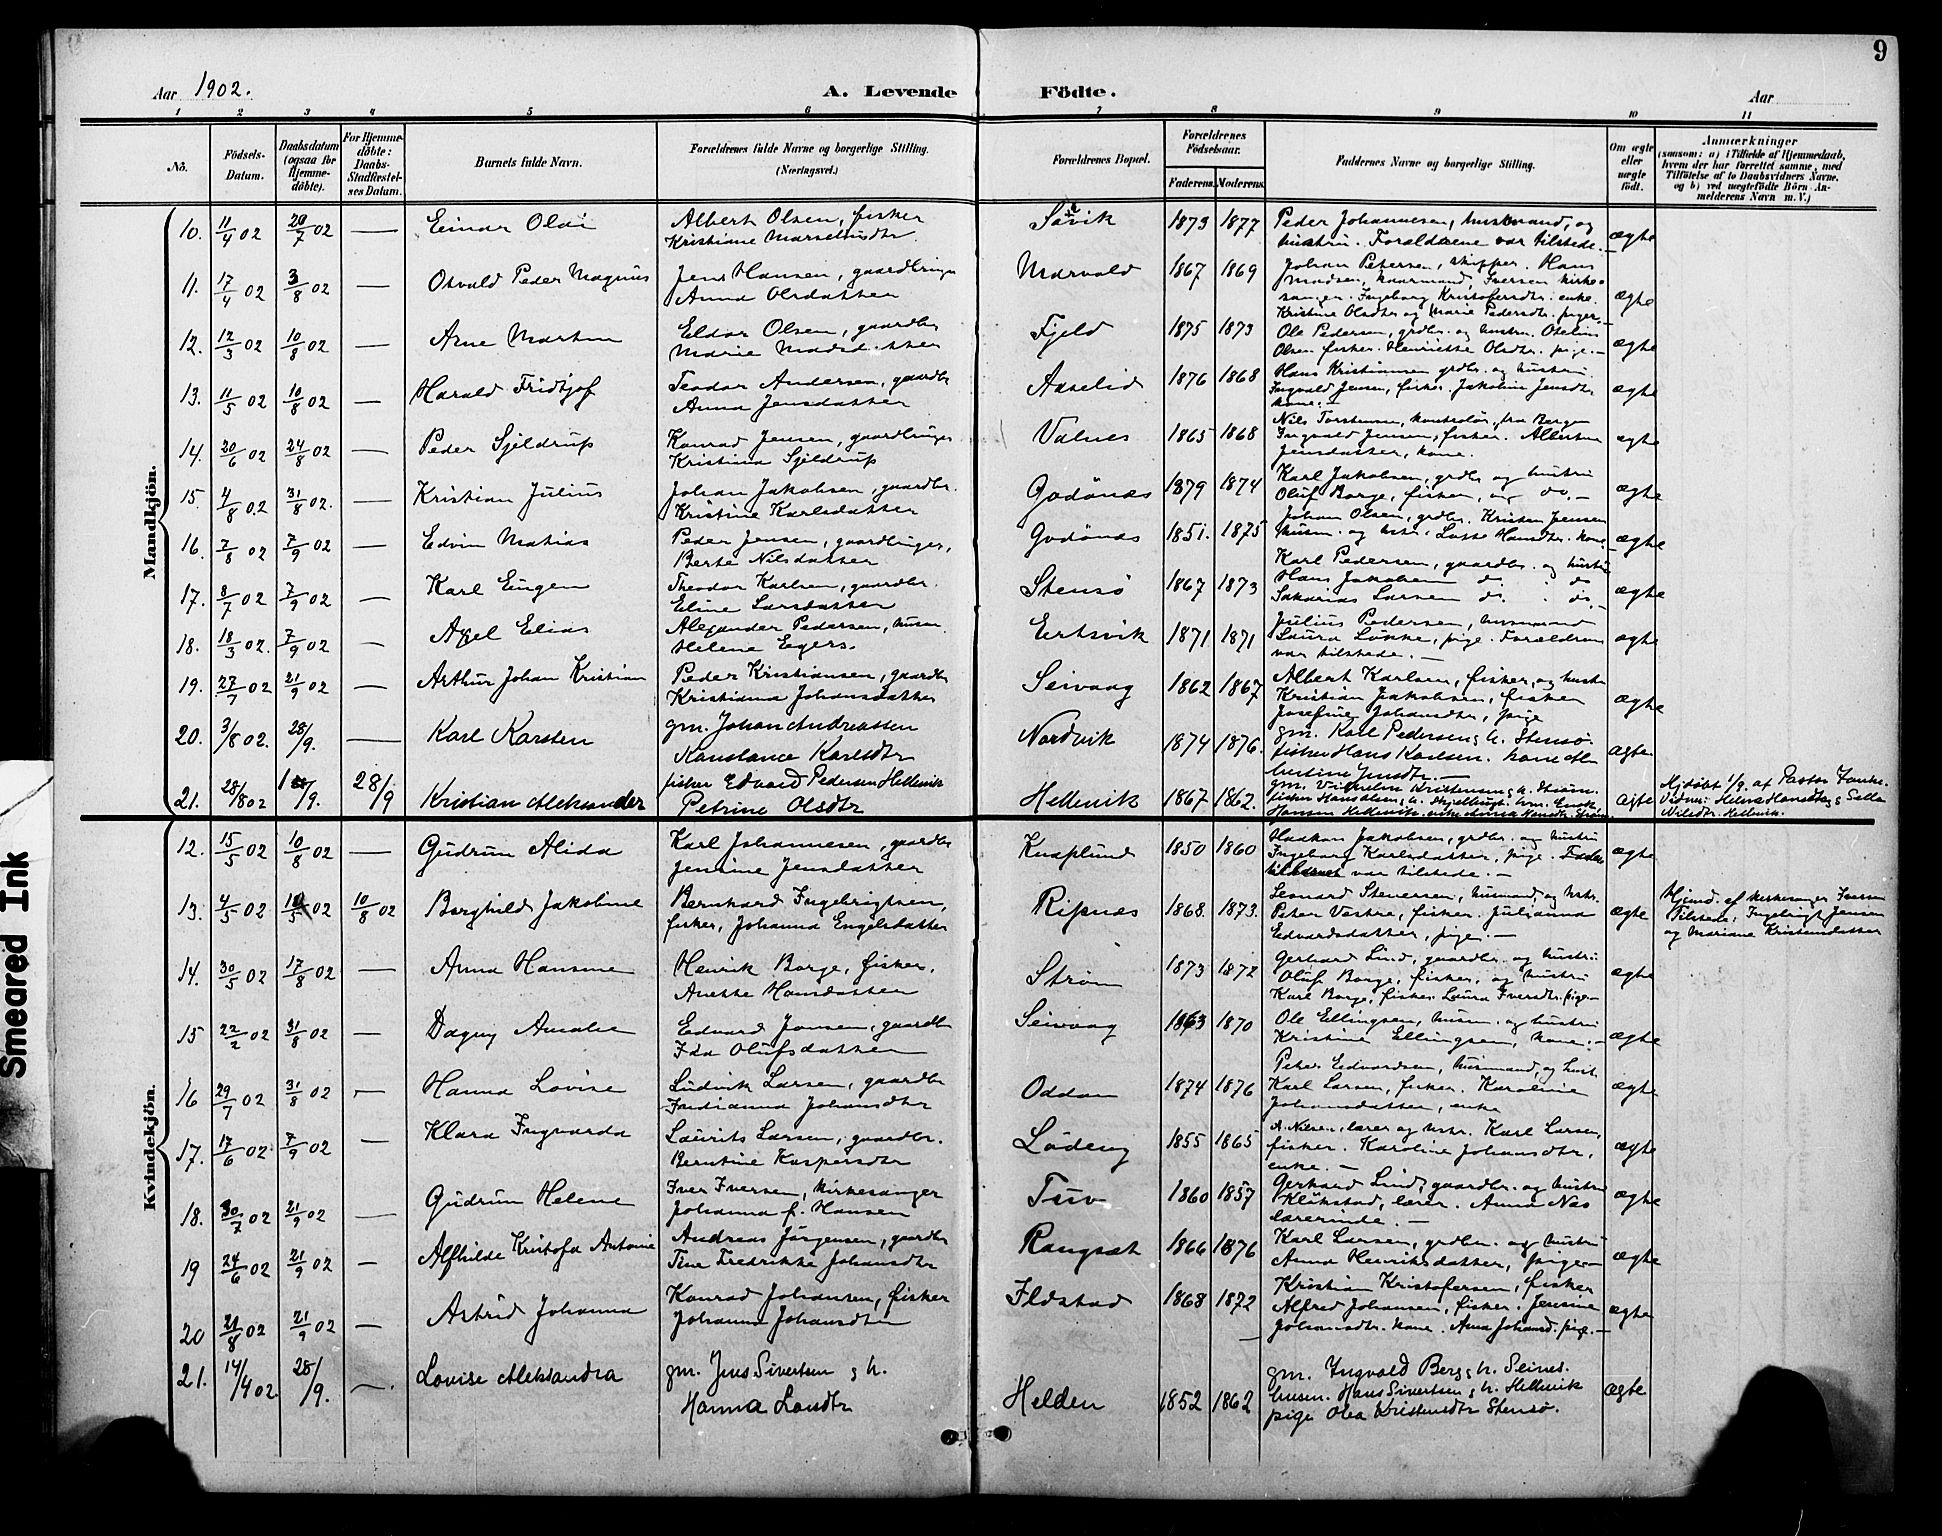 9
Aar 1902.
A. Levende Födte.
Aar
1 2 3 4 5 6 7 8 9 10 11
No.
Födsels-Datum.
Daabsdatum (ogsaa for Hjemmedöbte).
For Hjemmedöbte: Daabs-Stadfæstelses Datum.
Barnets fulde Navn.
Forældrenes fulde Navne og borgerlige Stilling. (Næringsvei.)
Forældrenes Bopæl.
Forældrenes Födselsaar.
Faderens. Moderens.
Faddernes Navne og borgerlige Stilling.
Om ægte eller uægte födt.
Anmærkninger
(saasom: a) i Tilfælde af Hjemmedaab, hvem der har forrettet samme, med Tilföielse af to Daabsvidners Navne. og b) ved uægtefödte Börn Anmelderens Navn m. V.)
Mandkjön.
10. 11/4 02 20/7 02 — Einar Olai Albert Olsen, fisker Savik 1873 1877 Peder Johannesen, husmand, og ægte
Kristiane hustru. Forældrene var tilstede. —
11. 17/4 02 3/8 02 — Osvald Peder Magnus Jens Hansen, gaardbruger Marvold 1867 1869 Johan Petersen, skipper. Hans ægte
Anna Olsdatter Madsen, Iversen kirkesanger. Ingeborg Kristofersdtr. enke.
Kristine Olsdtr og Marie Pedersdtr. piger
12. 12/3 02 10/8 02 — Arne Martin Eldor Olsen, gaardbr Fjeld 1875 1873 Ole Pedersen, grdbr. og hustru. ægte
Marie Madsdatter Olsen fisker. Henriette Olsdtr. pige. —
13. 11/5 02 10/8 02 — Harald Fridtjof Teodor Andersen, gaardbr Aaselid 1876 1868 Hans Kristiansen grdbr. og hustru ægte
Anna Jensdatter Ingvald Jensen, fisker. Jakobine Jensdtr kone. —
14. 20/6 02 24/8 02 — Peder Sjeldrup Konrad Jensen, gaardbruger Valnes 1865 1868 Nils Torstensen, kontrolør, fra Bergen ægte
Kristiana Sjeldrup Ingvald Jensen, fisker. Jensdatter, kone.
15. 4/8 02 31/8 02. — Kristian Julius Johan Jakobsen, gaardbr. Godönes 1879 1874 Karl Jakobsen, grdbr og hustru ægte
Kristine Karlsdatter Oluf Borge, fisker, og do. —
16. 7/8 02 7/9 02 — Edvin Matias Peder Jensen, gaardbruger, Godönes 1851. 1875 Johan Olsen, grdbr. Kristen Jensen ægte
Berte Nilsdatter husm. og hstr. Hansdtr. kone —
17. 8/7 02 7/9 02 — Karl Eugen Theodor Karlsen, gaardbr. Stensö 1867 1873 Karl Pedersen, gaardbr. og hustru ægte
Eline Larsdatter Hans Jakobsen do. do
Sakarias Larsen do. do. —
18. 18/3 02. 7/9 02 — Axel Elias Alexander Pedersen, husm. Evtsvik 1871 1871 Julius Pedersen, husmand ægte
Helene Egers. Laura Løkke, pige. Forældrene var tilstede. —
19. 27/7 02 21/9 02 — Arthur Johan Kristian Peder Kristiansen, gaardbr Seivaag 1862 1867 Albert Karlsen, fisker, og hustr ægte
Kristiana Johansdatter Kristian Jakobsen, fisker
Josefine Johansdtr, pige
20. 3/8 02. 28/9. — Karl Karsten gm. Johan Andreassen Nordvik 1874 1876. gm. Karl Pedersen & h. Stensø. ægte
Konstance Karlsdtr fisker Hans Karlsen. kone Jensdtr. —
21. 28/8 02 1/9. 28/9 Kristian Aleksander fisker Edvard Pedersen Hellevik Hellevik 1867 1862. gm. Vilhelm Kristensen & h. Strøm. ægte Hjdöbt 1/9 af Pastor
Petrine Olsdtr fisker Hans Olsen & h. Vidner: Helene Hansdtr &
Hansen Hellevik. Nilsdtr. Hellevik.
Kvindekjön.
12. 15/5 02 10/8 02 — Gudrun Alida Karl Johannesen, gaardbr Knaplund 1850 1860 Haakon Jakobsen, grdbr. og hustru ægte
Jensine Jensdatter Ingeborg Karlsdatter, pige. var tilstede. —
13. 4/5 02 10/5 02 10/8 02 Borghild Jakobine Bernhard Ingebrigtsen, Ripnes 1868. 1873. Leonard Steversen, husmand, og hstr. ægte Hjemd. af kirkesanger Iversen
fisker, Johanna Engelsdatter Peter Vastre, fisker. Julianna Tilstede: Ingebrigt Jensen
Edvardsdatter, pige. — og Mariane Kristensdatter
14. 30/5 02 17/8 02 — Anna Hansine Henrik Borge, fisker. Strøm 1873 1872 Gerhard Lind, gaardbr. og hustru ægte
Anette Hansdatter Oluf Borge, fisker, og hustru
Karl Borge, fisker. Laura Iversdtr. pige —
15 22/2 02 31/8 02 — Dagny Amalie Edvard Jonsen, gaardbr Seivaag 1863 1870 Ole Ellingsen, husm. og hustru ægte
Ida Olufsdatter Kristine Ellingsen, kone. —
16 29/7 02 31/8 02 — Hanna Lovise Ludvik Larsen, gaardbr Oddan 1874 1876 Peter Edvardsen, husmand, og hust. ægte
Indianna Johansdtr Karl Larsen, fisker. Karoline
Johansdatter, enke
17. 17/6 02 7/9 02 — Klara Ingvarda Laurits Larsen, gaardbr. Lödeng 1855 1865 A. Nilsen, lærer og hstr. Karl Larsen, ægte
Berntine Kaspersdtr fisker. Karoline Johansdtr, enke. —
18. 30/7 02 21/9 02 — Gudrun Helene Iver Iversen, kirkesanger Tuv 1860 1857 Gerhard Lind, gaardbr. og hustru ægte
Johanna f. Hansen Klükstad, lærer. Anna Nes lærerinde. —
19 24/6 02 21/9 02 — Alfhilde Kristofa Antonie Andreas Jörgensen, gaardbr Rangsæt 1866 1876 Karl Larsen, grdbr. og hustru ægte
Tine Fredrikke Johansdtr Anna Henriksdatter, pige —
20 21/8 02 21/9 02 — Astrid Johanna Konrad Johansen, fisker Ildstad 1868 1872 Kristian Kristofersen, fisker ægte
Johanna Johansdtr Alfred Johansen, fisker. Jensine
Johansdtr. kone. Anna Johansd. pige. —
21. 14/4 02. 28/9. — Lovise Aleksandra gm. Jens Sivertsen & h. Helden 1852 1862 gm. Ingvald Berg & h. Seines. ægte
Hanna husm. Hans Sivertsen & h. Hellevik
pige Olea Kristensdtr Stensø.
Smeared Ink